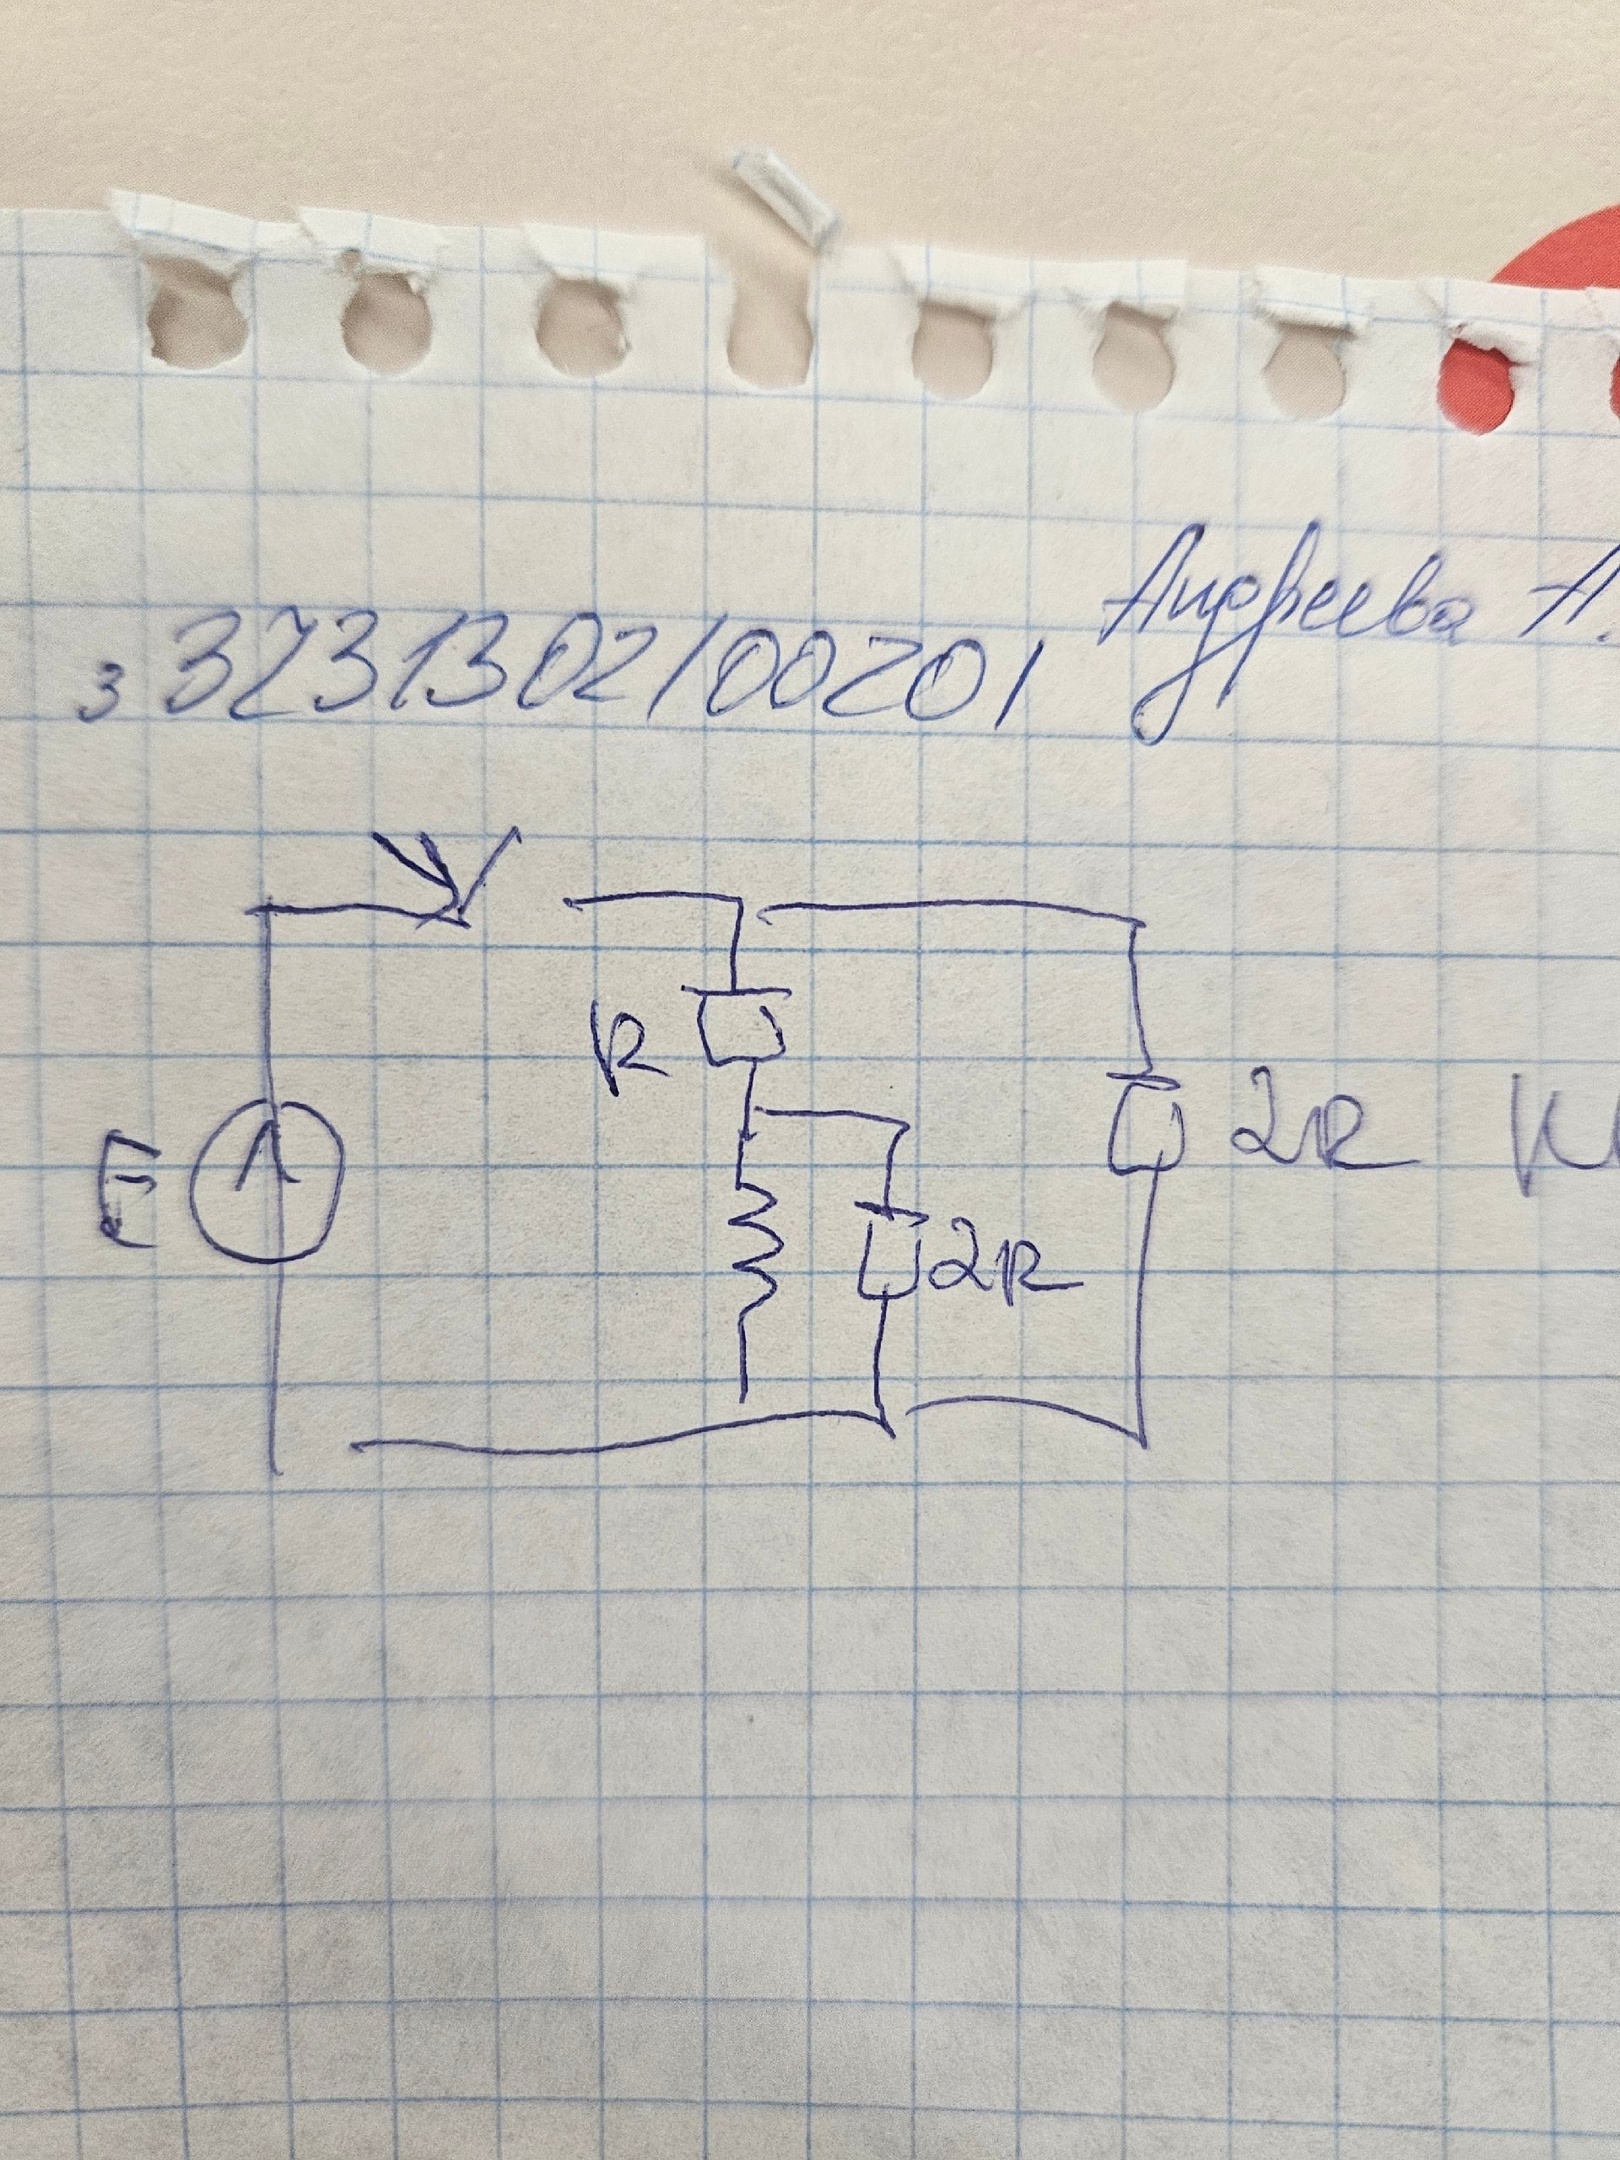 з 3731302/00201 Андреева А.
E
R
2R
2R